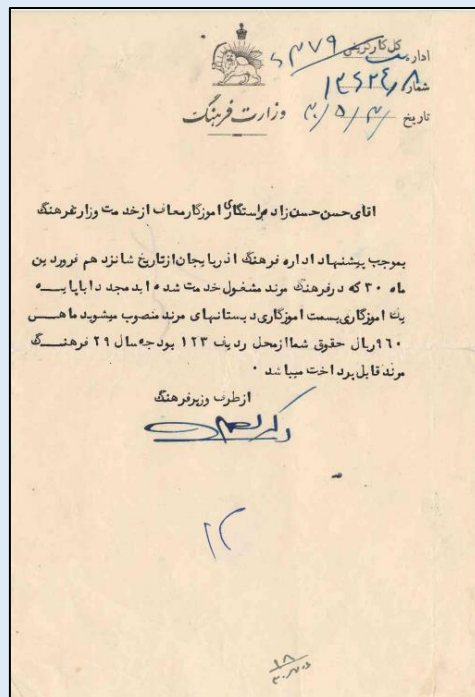 اداره کل کارگزینی
شماره ۱۳۶۲۴/۸
تاریخ ۳۰/۵/۳۰
وزارت فرهنگ
اقای حسن حسن زاد اموزگار معاف از خدمت وزارت فرهنگ
بموجب پیشنهاد اداره فرهنگ اذربایجان از تاریخ شانزد هم فروردین
ماه ۳۰ که در فرهنگ مرند مشغول خدمت شده اید مجد دا باپایــه
یك اموزگاری بسمت اموزگاری دبستانهای مرند منصوب میشوید ماهــی
۹۶۰ ریال حقوق شما از محل ردیف ۱۲۳ بودجه سال ۲۹ فرهنــگ
مرند قابل پرداخت میبا شد ۰
از طرف وزیر فرهنگ
۱۲
۱۸